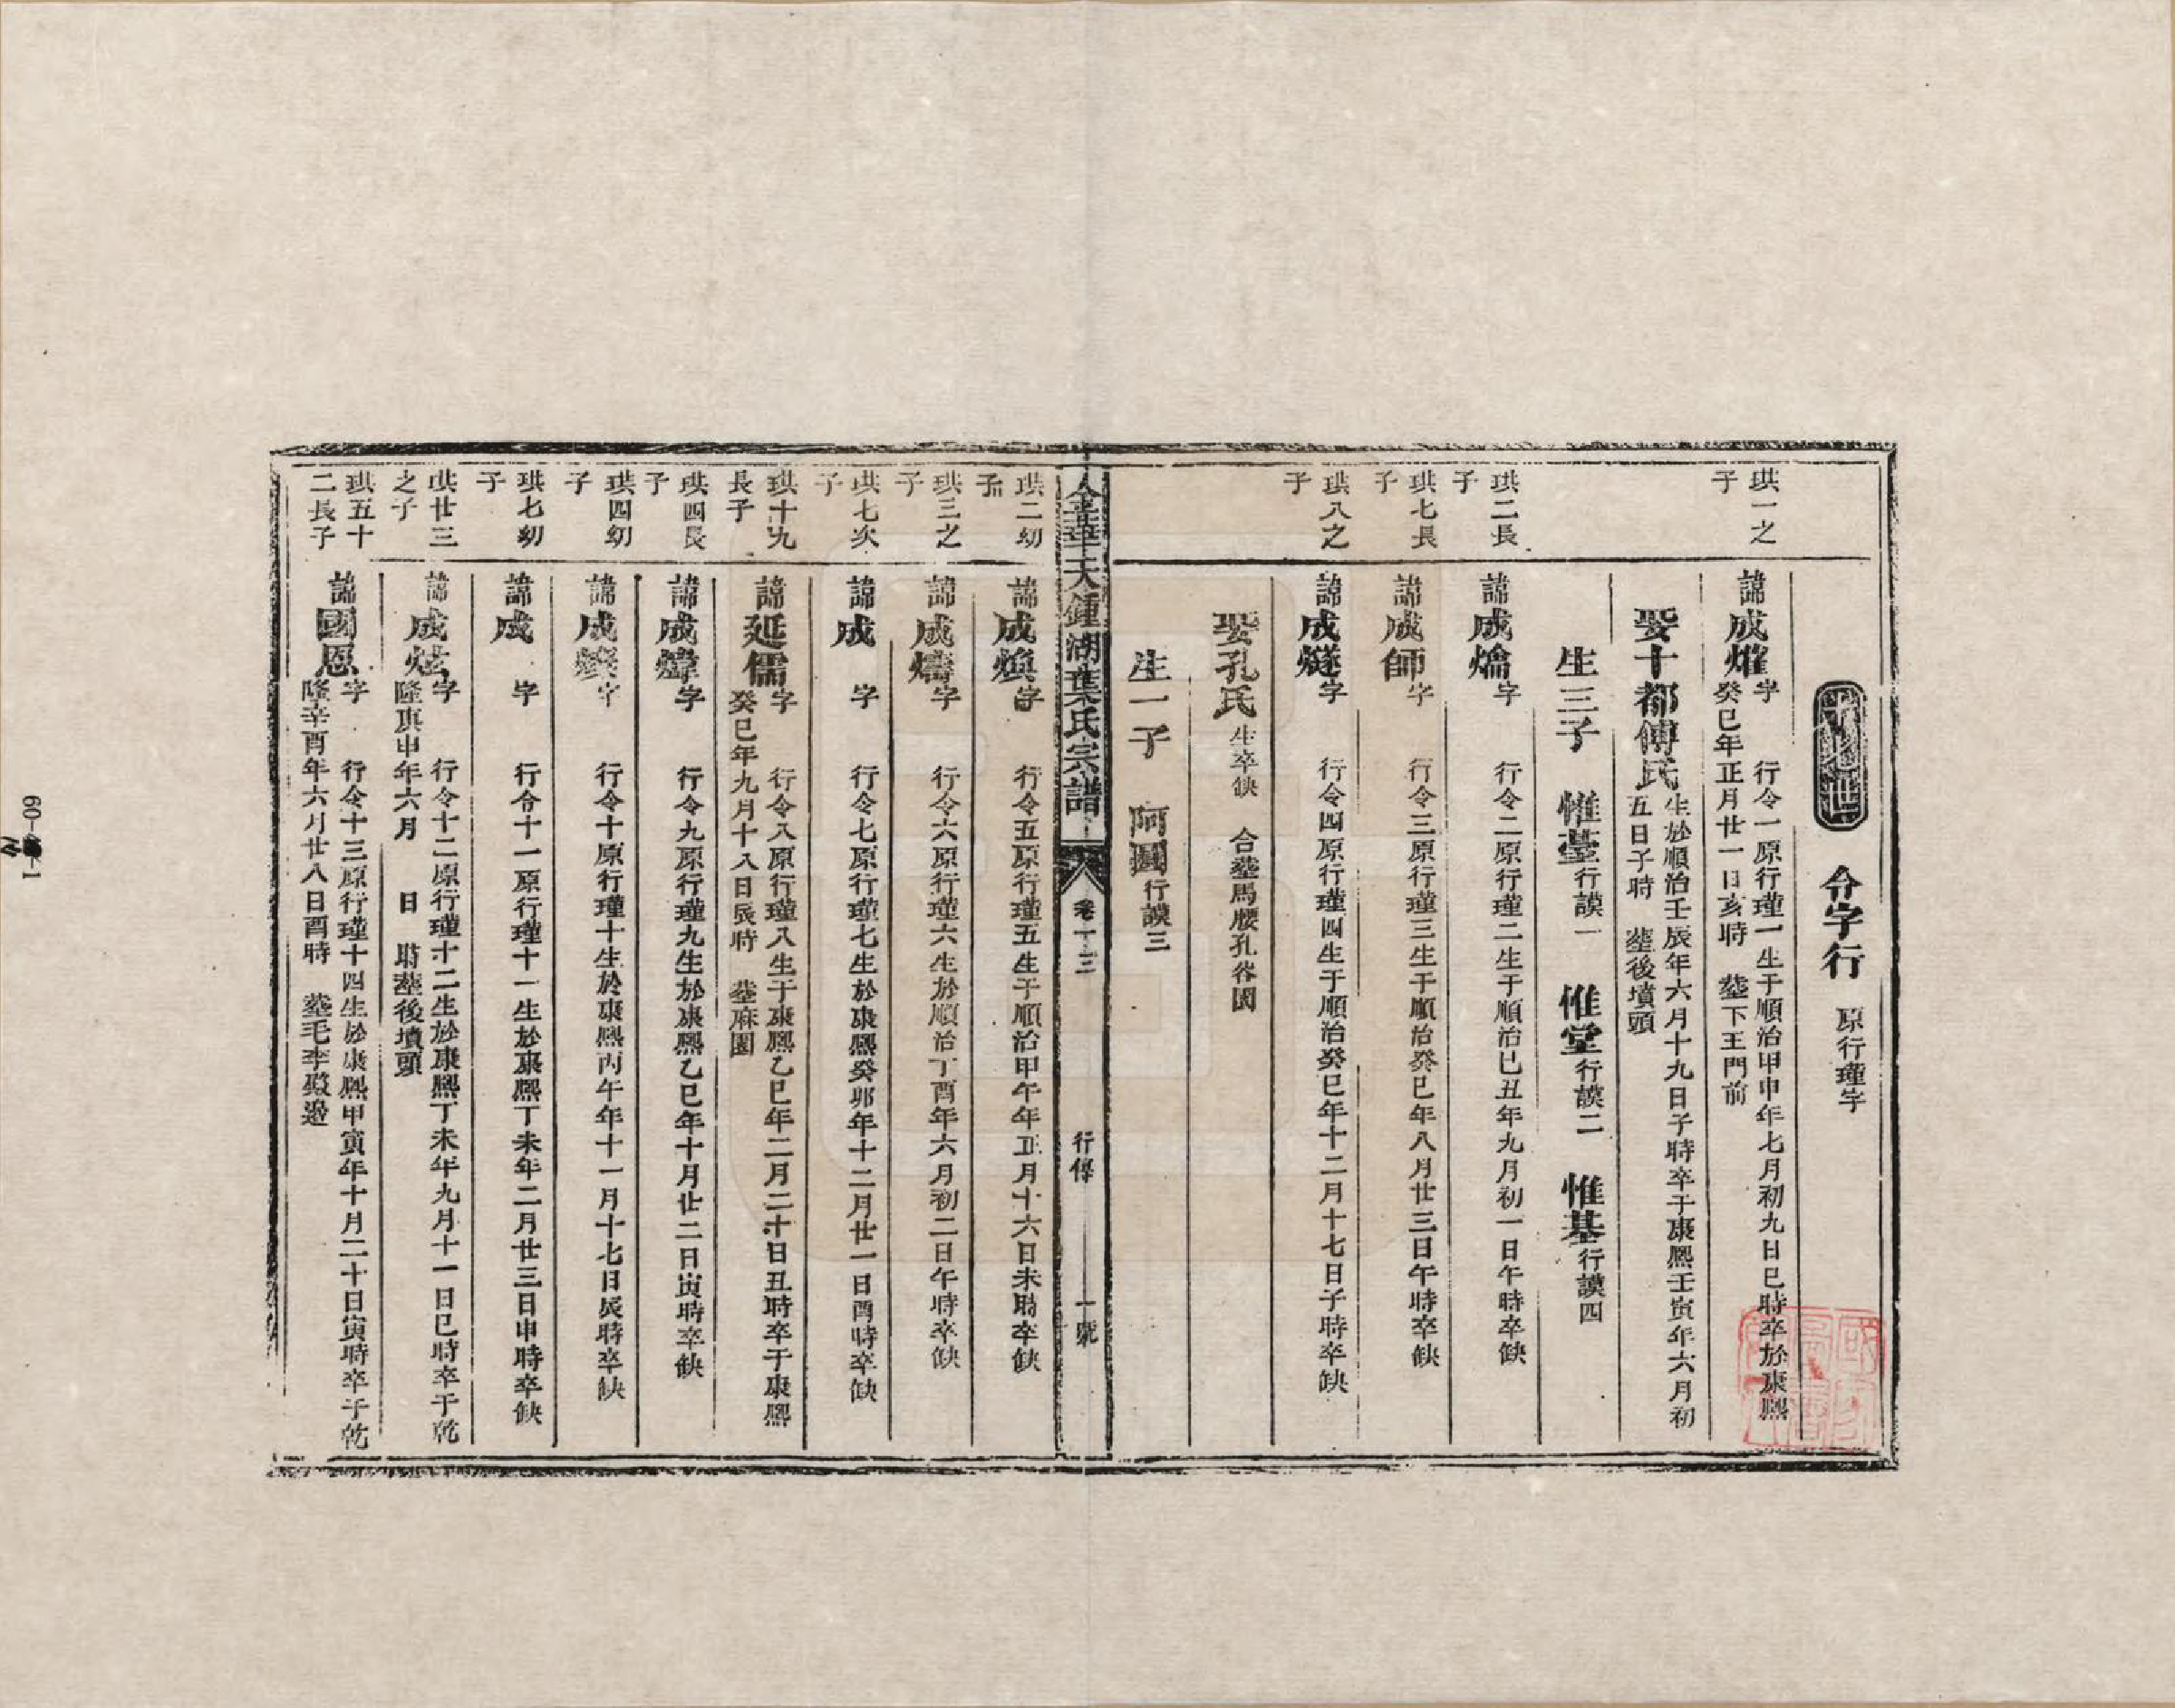 令字行 原行瑾字
珙一之子
諱成㷟字 行令一原行瑾一生于順治甲申年七月初九日巳時卒於康熙
癸巳年正月廿一日亥時 塟下王門前
娶十都傅氏生於順治壬辰年六月十九日子時卒于康熙壬寅年六月初
五日子時 塟後墳頭
生三子 惟臺行謨一 惟堂行謨二 惟基行謨四
珙二長子
諱成爚字 行令二原行瑾二生于順治己丑年九月初一日午時卒缺
珙七長子
諱成師字 行令三原行瑾三生于順治癸巳年八月廿三日午時卒缺
珙八之子
諱成燧字 行令四原行瑾四生于順治癸巳年十二月十七日子時卒缺
娶孔氏生卒缺 合塟馬腰孔塔園
生一子 阿圓行謨三
金華天鍾湖葉氏宗譜 卷十三 行傳 一號
珙二幼子
諱成煥字 行令五原行瑾五生于順治甲午年正月十六日未時卒缺
珙三之子
諱成燽字 行令六原行瑾六生於順治丁酉年六月初二日午時卒缺
珙七次子
諱成 字 行令七原行瑾七生於康熙癸卯年十二月廿一日酉時卒缺
珙十九長子
諱延儒字 行令八原行瑾八生于康熙乙巳年二月二十日丑時卒于康熙
癸巳年九月十八日辰時 塟麻園
珙四長子
諱成煒字 行令九原行瑾九生於康熙乙巳年十月廿二日寅時卒缺
珙四幼子
諱成字 行令十原行瑾十生於康熙丙午年十一月十七日辰時卒缺
珙七幼子
諱成 字 行令十一原行瑾十一生於康熙丁未年二月廿三日申時卒缺
珙廿三之子
諱成炫字 行令十二原行瑾十二生於康熙丁未年九月十一日巳時卒于乾
隆庚申年六月 日 時塟後墳頭
珙五十二長子
諱國恩字 行令十三原行瑾十四生於康熙甲寅年十月二十日寅時卒于乾
隆辛酉年六月廿八日酉時 塟毛李殿邊